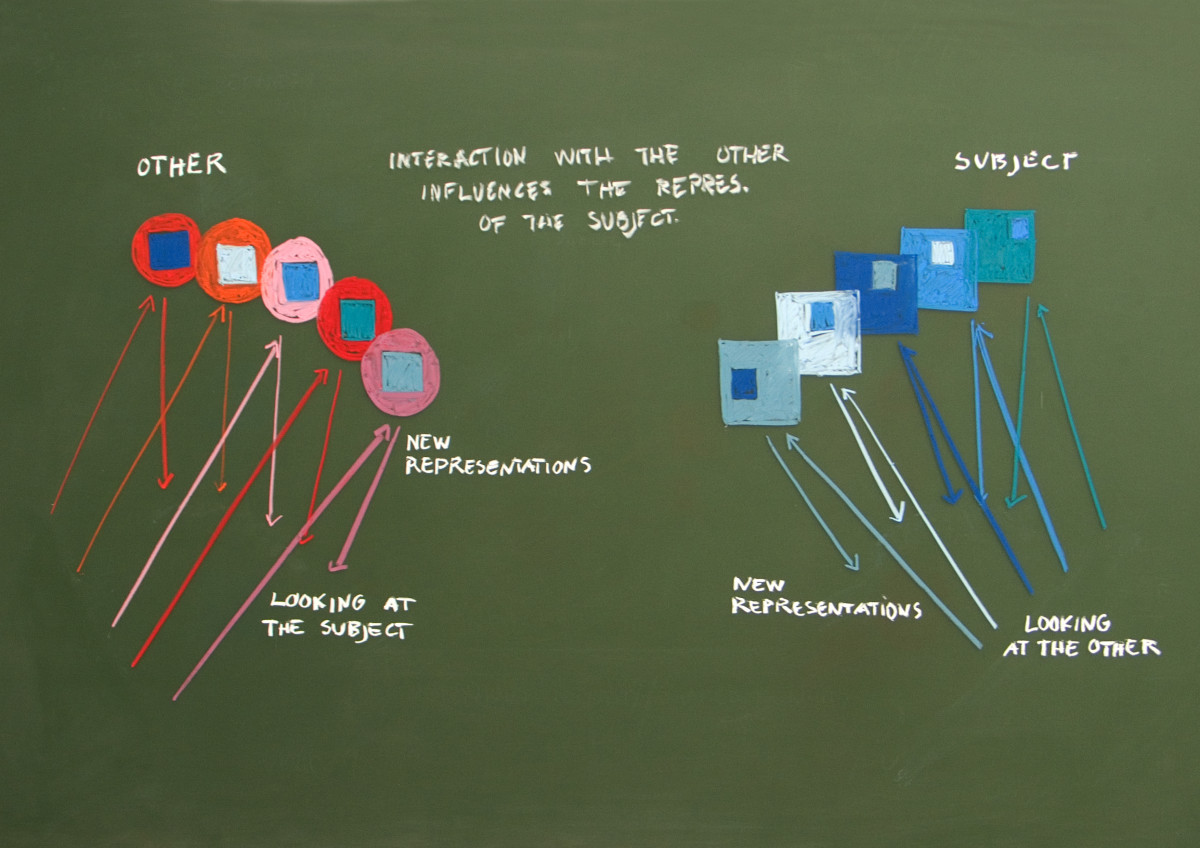 OTHER
INTERACTION WITH THE OTHER
INFLUENCES THE REPRES.
OF THE SUBJECT.
SUBJECT
NEW
REPRESENTATIONS
LOOKING AT
THE SUBJECT
NEW
REPRESENTATIONS
LOOKING
AT THE OTHER